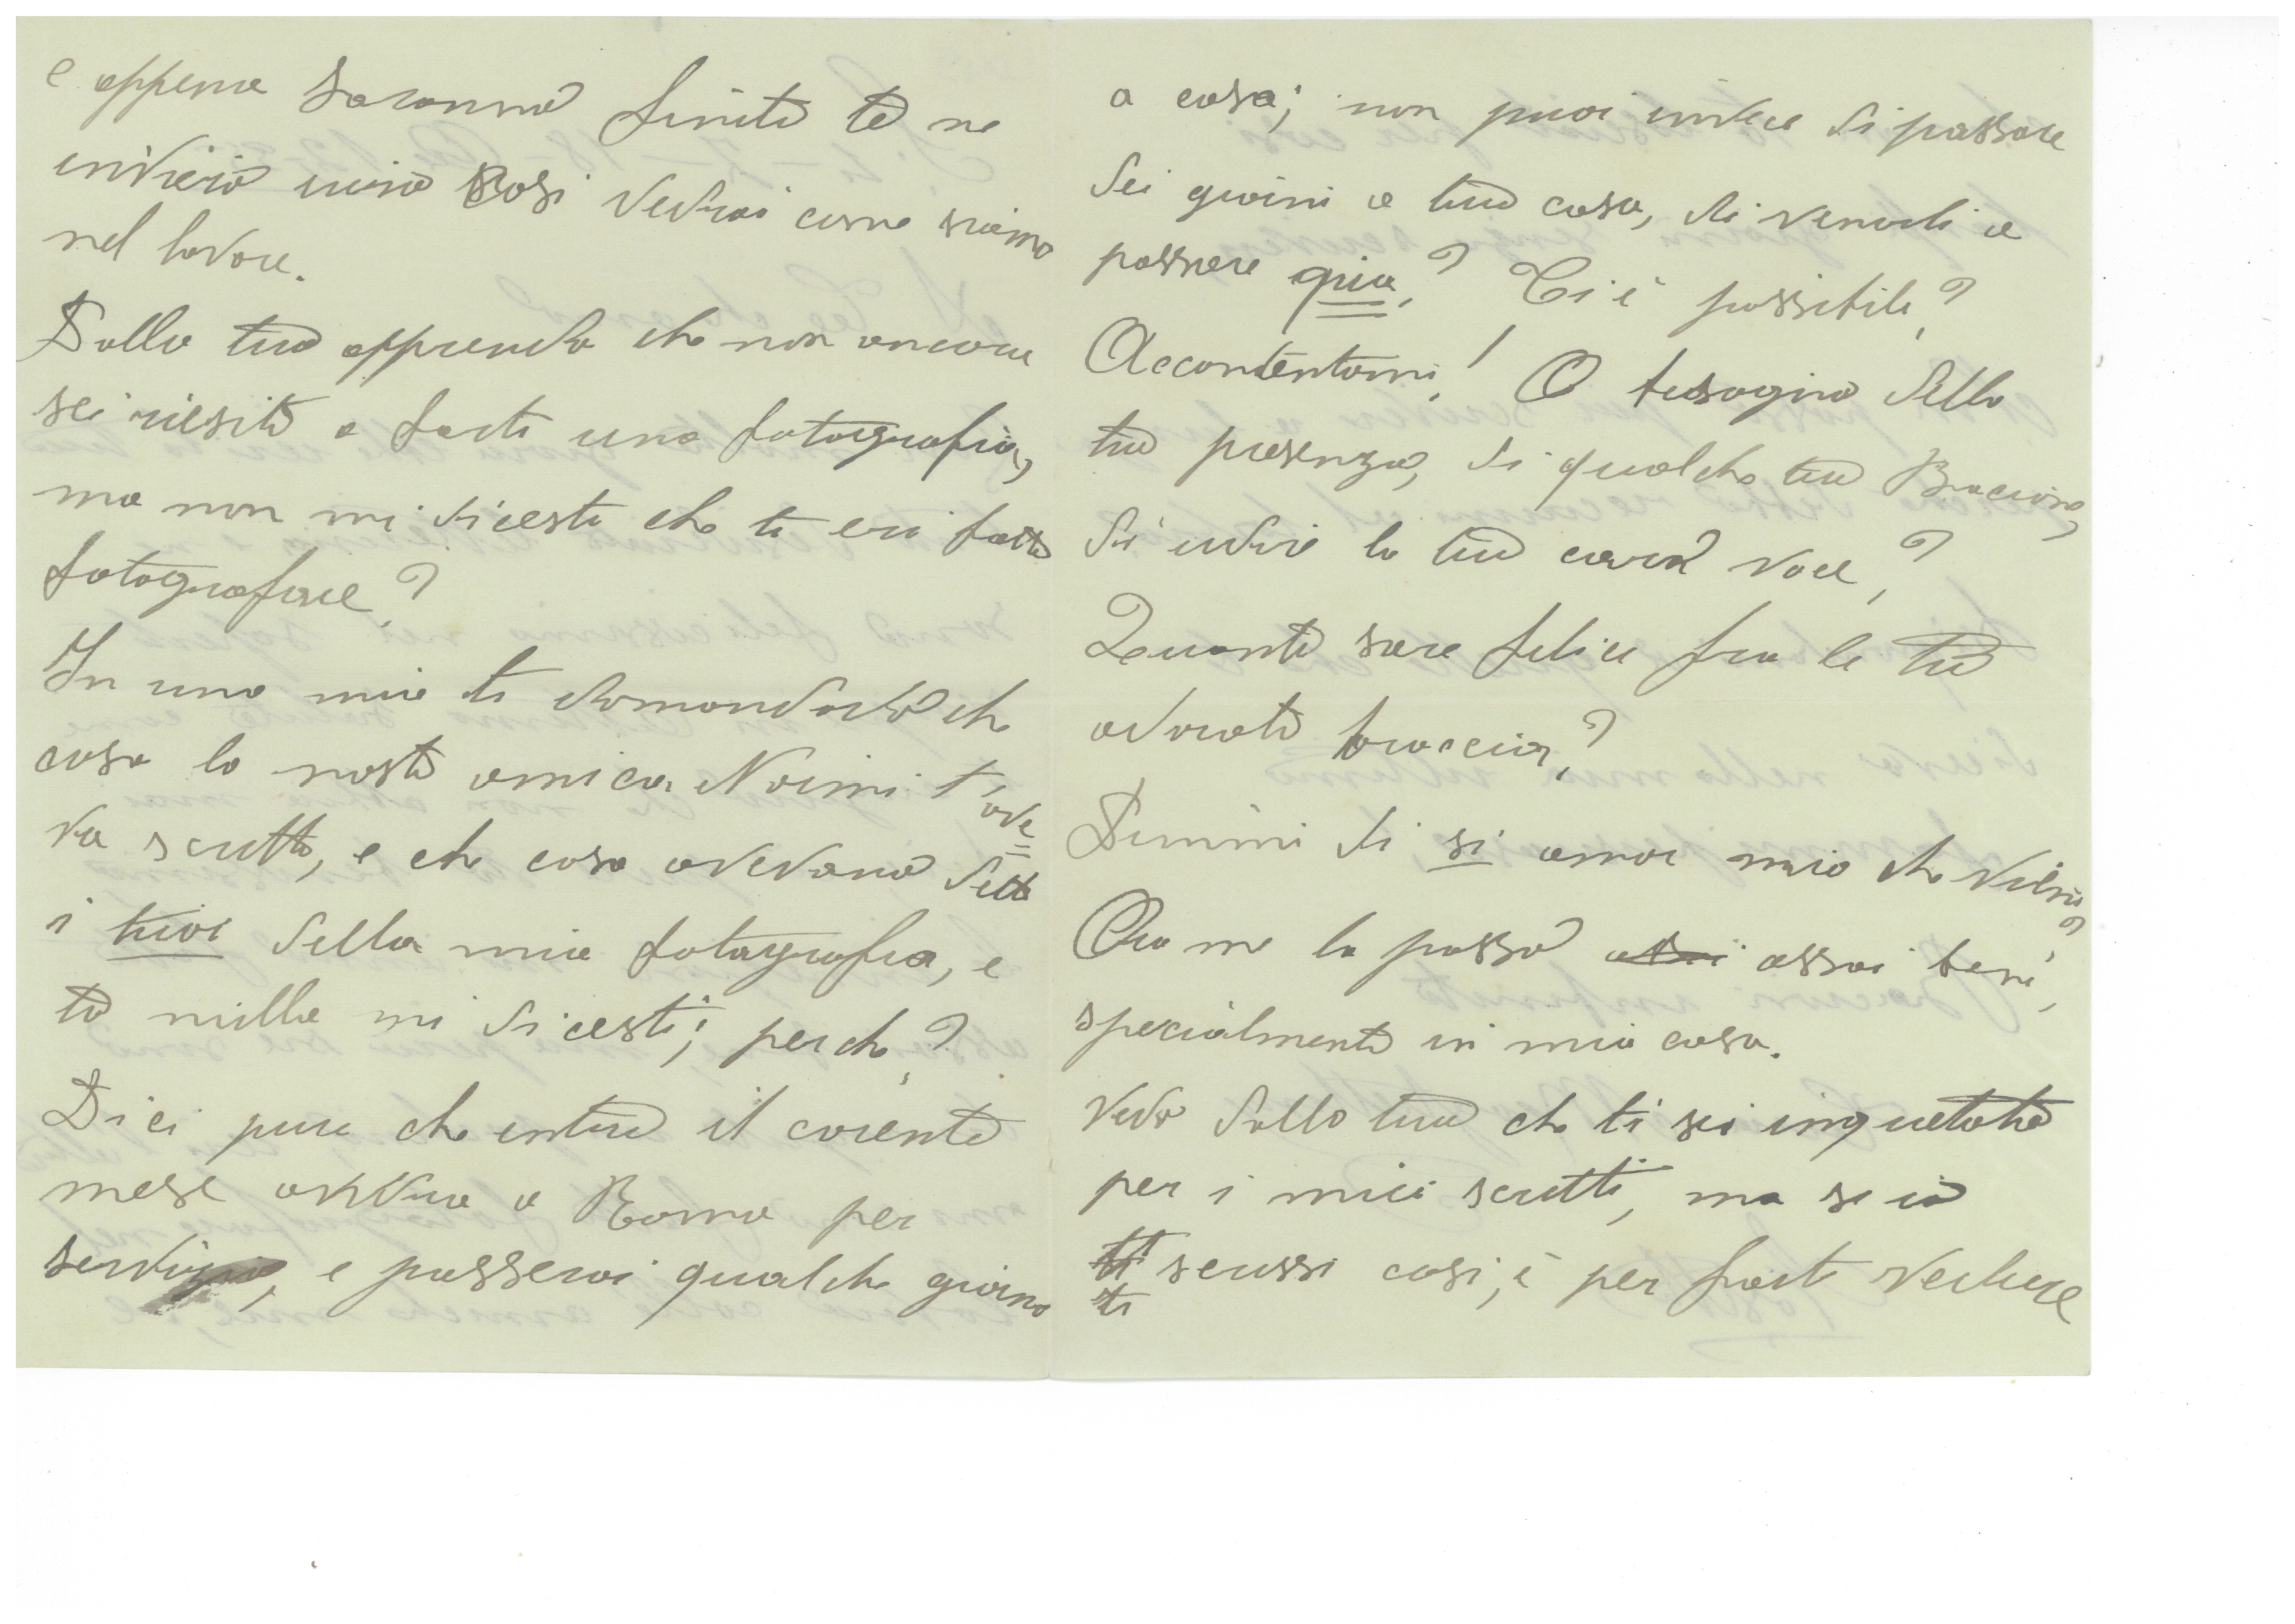 e appena saranno finite te ne
invierò una così vedrai come siamo
nel lavoro.
Dalla tua apprendo che non ancora
sei riesito a farti una fotografia,
ma non mi dicesti che ti eri fatto
fotografare?
In una mia ti domandavo che
cosa la nostra amica Noimi t'ave=
va scritto, e che cosa avevano detto
i tuoi della mia fotografia, e
tu nulla mi dicesti; perche?
Dici pure che entro il corente
mese avverra a Roma per
servizio, e passerai qualche giorno
a casa; non puoi invece di passare
dei giorni a tua casa, di venirli a
passare qua? Ti è possibile?
Accontentami! O bisogno della
tua presenza, di qualche tuo Bacione,
di udire la tua cara voce?
Quanto sare felice fra le tue
adorate braccia?
Dimmi di si amor mio che
Ora me la passo assai assai bene,
specialmente in mia casa.
Vedo dalla tua che ti sei inquetato
per i miei scritti, ma se io
ti scrissi cosi, è per farti vedere
ti